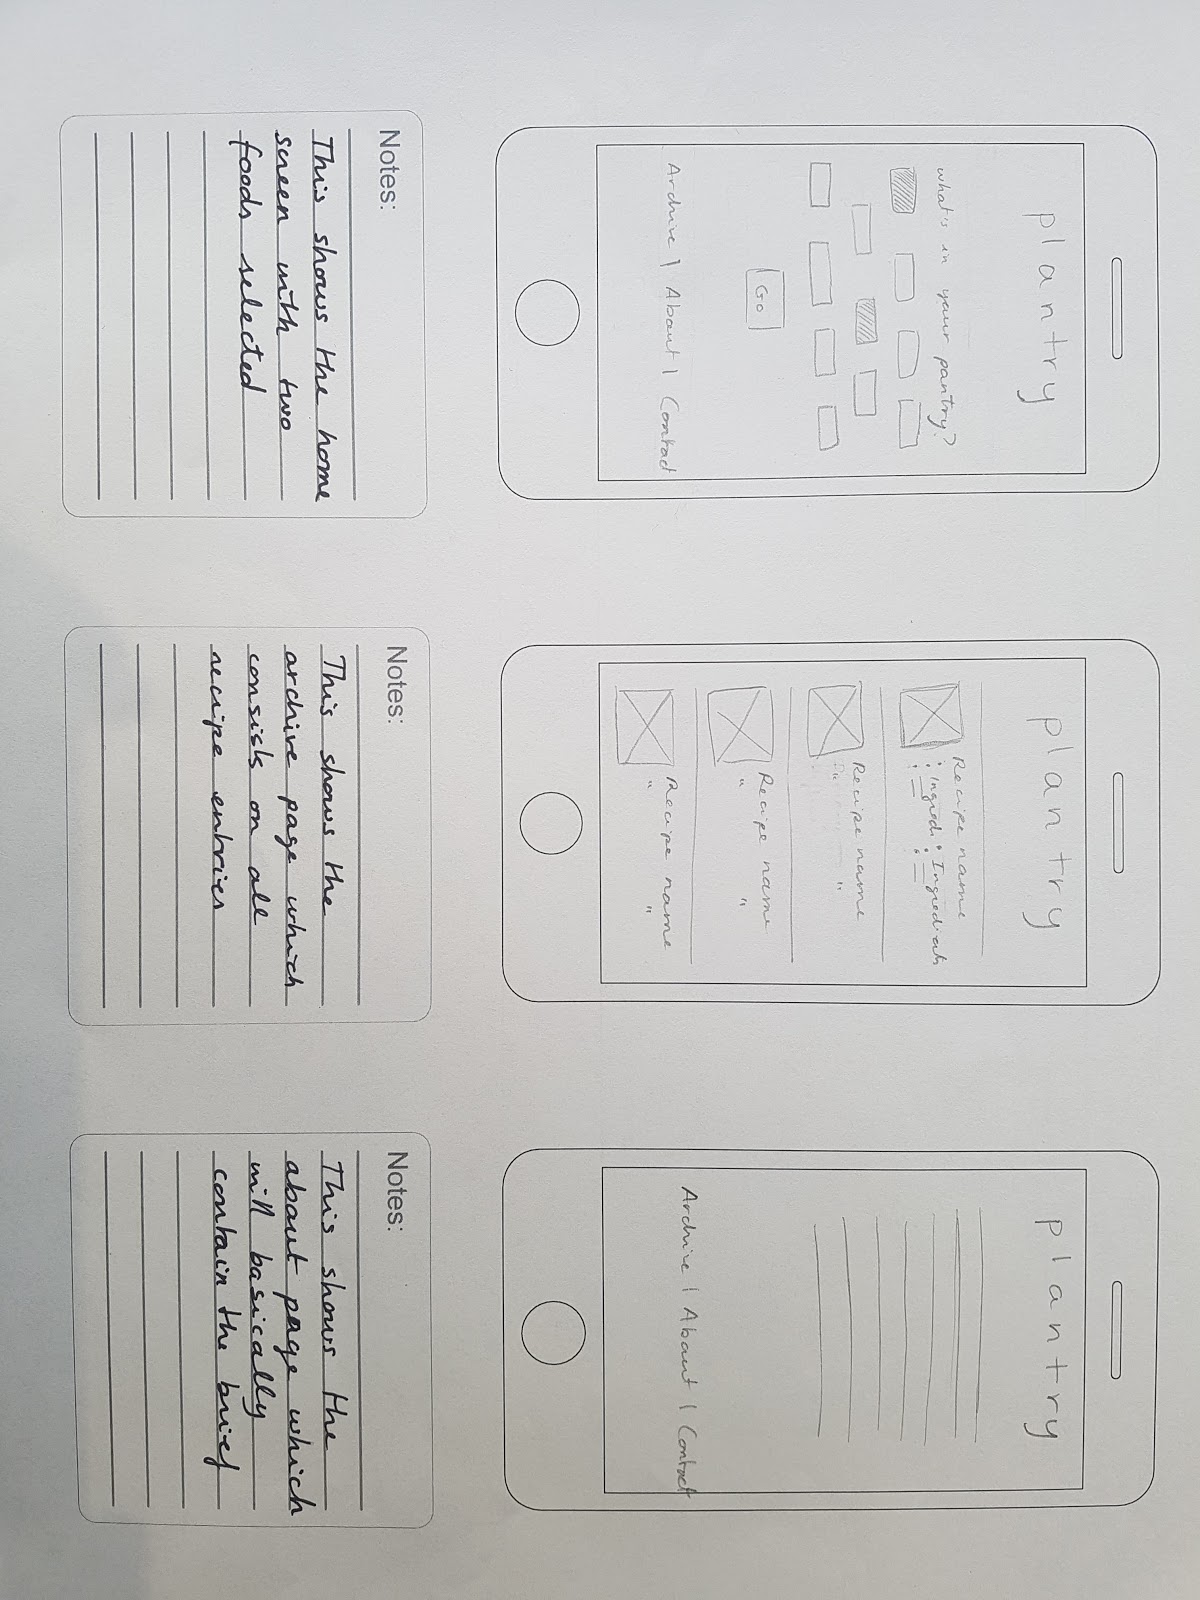 plantry
what's in your pantry?
Go
Archive | About | Contact
Notes:
This shows the home
screen with two
foods selected
plantry
Recipe name
: Ingredi : Ingredients
Recipe name
"
Recipe name
" "
Recipe name
" "
Notes:
This shows the
archive page which
consists on all
recipe entries
plantry
Archive | About | Contact
Notes:
This shows the
about page which
will basically
contain the brief